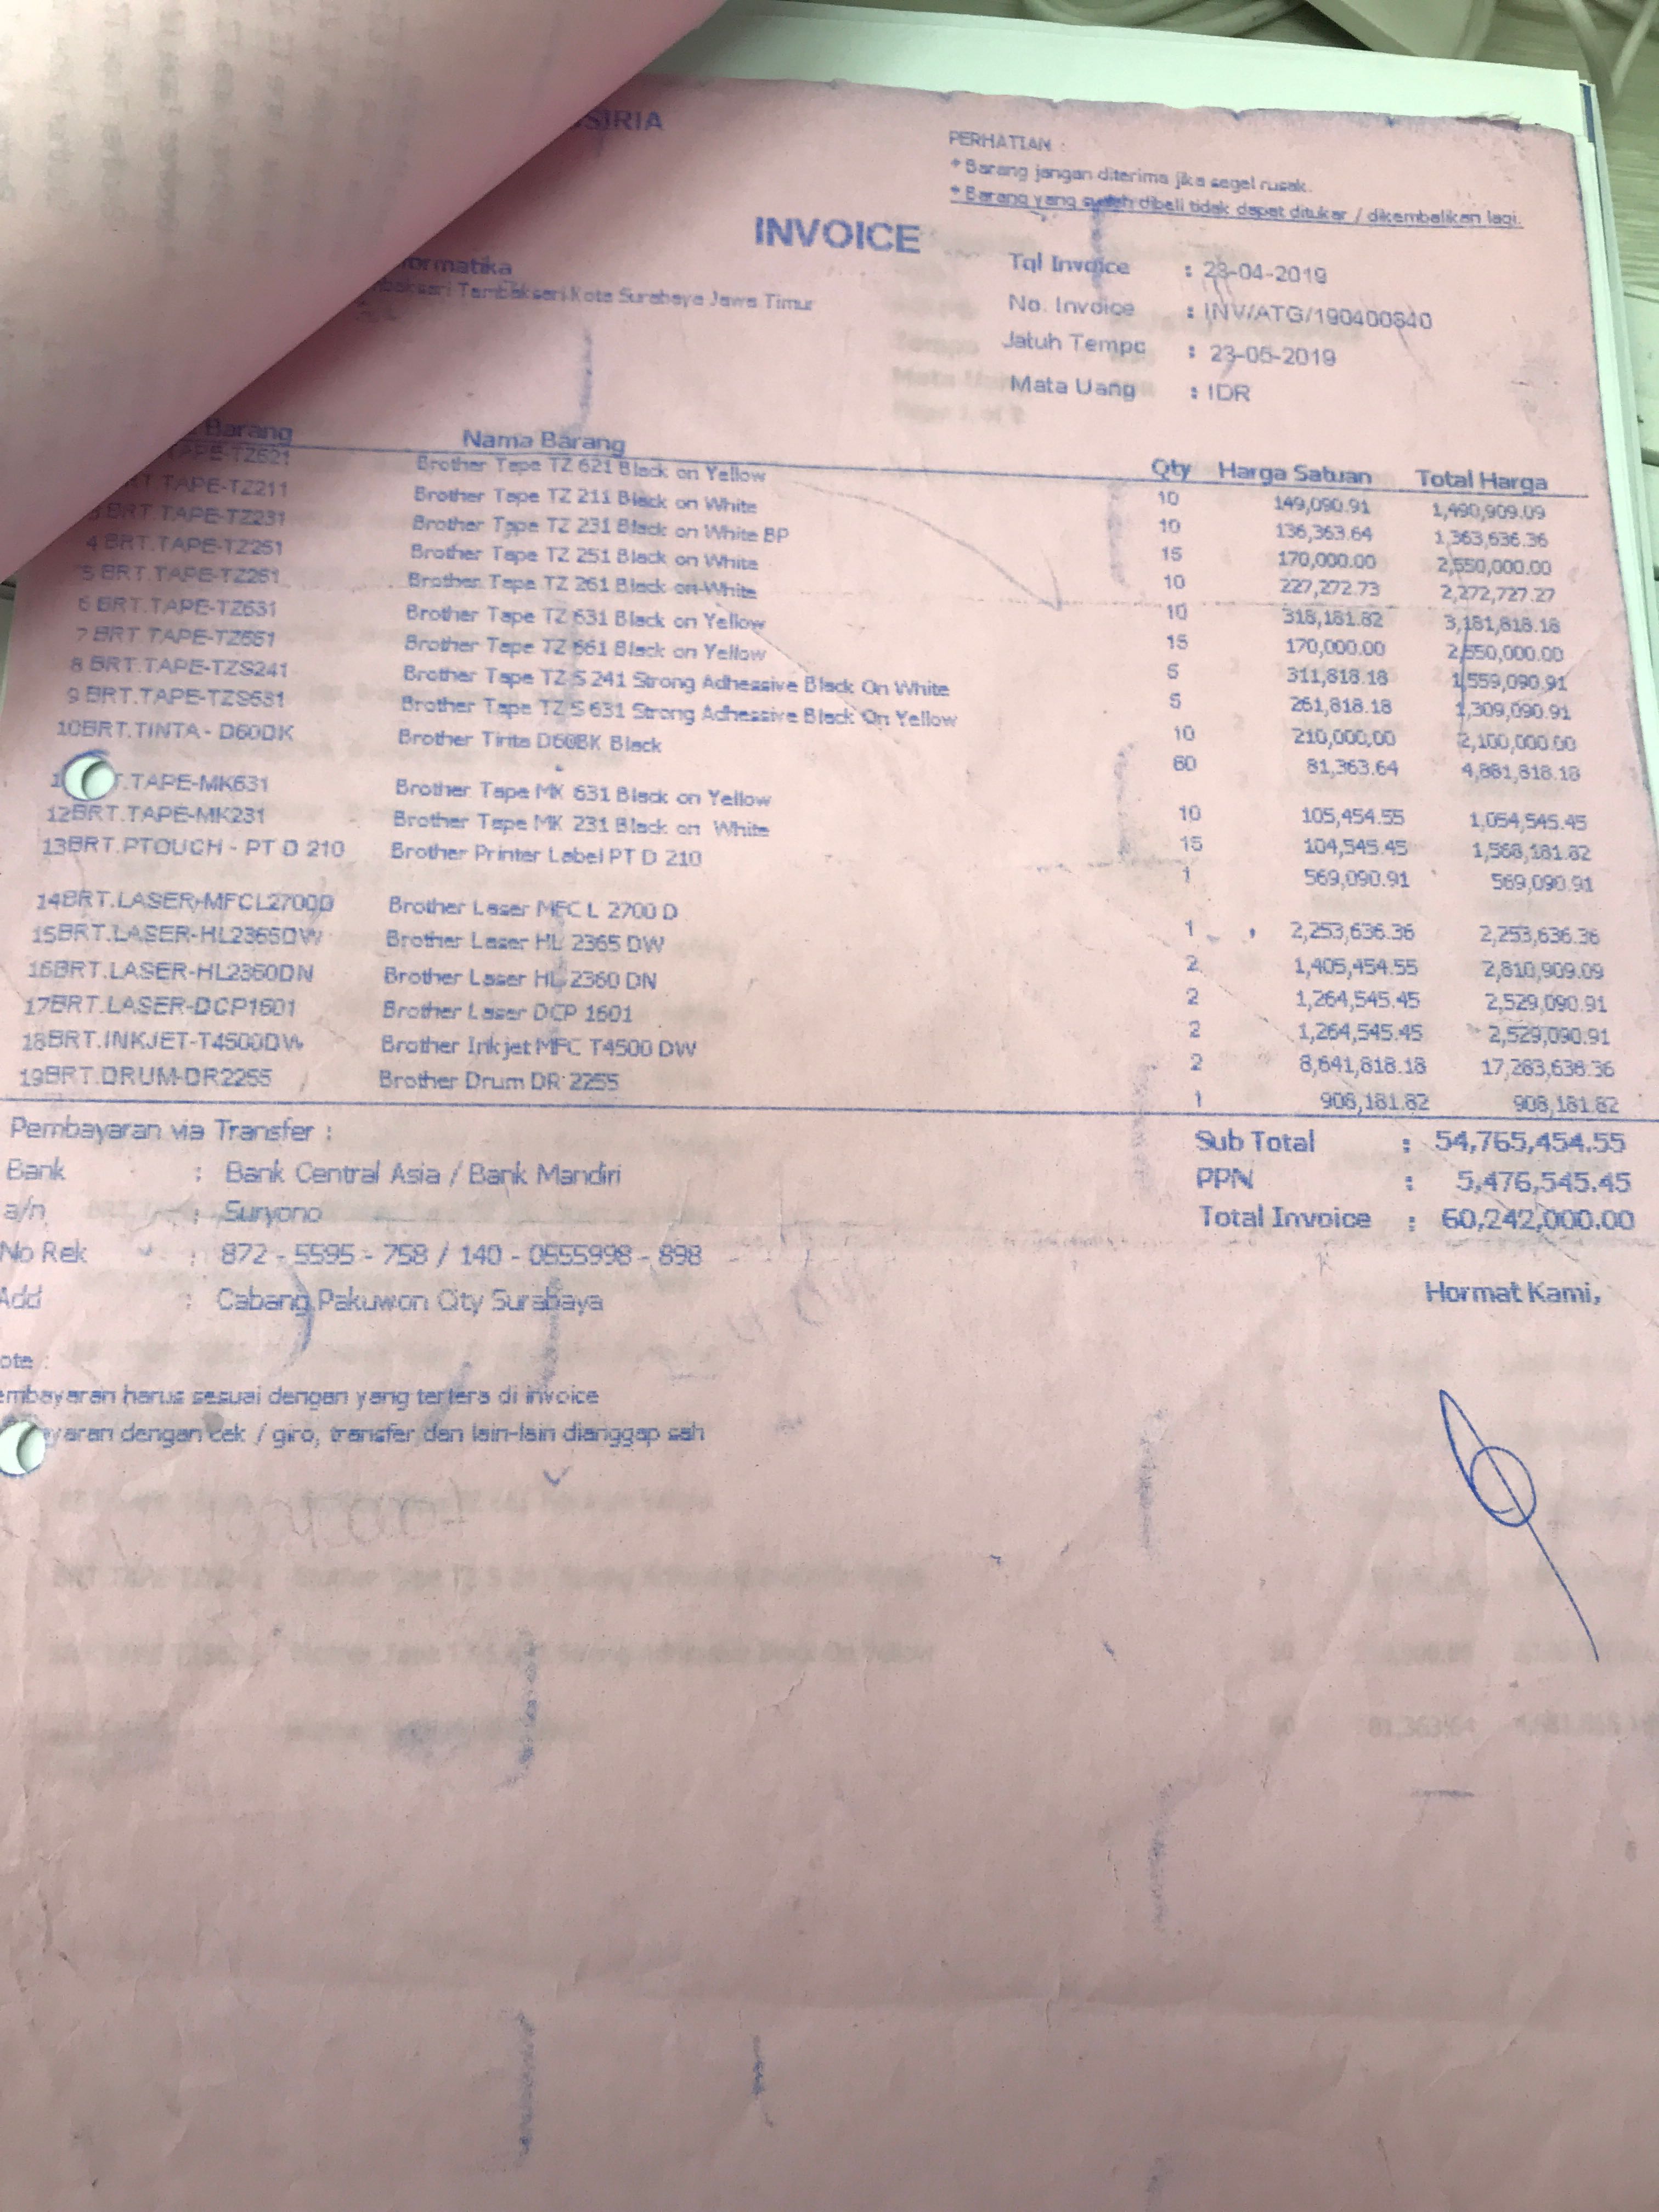 PERHATIAN :
* Barang jangan diterima jika segel rusak.
* Barang yang sudah dibeli tidak dapat ditukar / dikembalikan lagi.
INVOICE
Tambaksari Kota Surabaya Jawa Timur
Tgl Invoice : 23-04-2019
No. Invoice : INV/ATG/190400840
Jatuh Tempo : 23-05-2019
Mata Uang : IDR
Barang Nama Barang Qty Harga Satuan Total Harga
TAPE-TZ621 Brother Tape TZ 621 Black on Yellow 10 149,090.91 1,490,909.09
TAPE-TZ211 Brother Tape TZ 211 Black on White 10 136,363.64 1,363,636.36
BRT.TAPE-TZ231 Brother Tape TZ 231 Black on White BP 15 170,000.00 2,550,000.00
4 BRT.TAPE-TZ251 Brother Tape TZ 251 Black on White 10 227,272.73 2,272,727.27
5 BRT.TAPE-TZ261 Brother Tape TZ 261 Black on White 10 318,181.82 3,181,818.18
6 BRT.TAPE-TZ631 Brother Tape TZ 631 Black on Yellow 15 170,000.00 2,550,000.00
7 BRT.TAPE-TZ661 Brother Tape TZ 661 Black on Yellow 5 311,818.18 1,559,090.91
8 BRT.TAPE-TZS241 Brother Tape TZ S 241 Strong Adhessive Black On White 5 261,818.18 1,309,090.91
9 BRT.TAPE-TZS631 Brother Tape TZ S 631 Strong Adhessive Black On Yellow 10 210,000,00 2,100,000.00
10BRT.TINTA - D60DK Brother Tinta D60BK Black 60 81,363.64 4,881,818.18
.TAPE-MK631 Brother Tape MK 631 Black on Yellow 10 105,454.55 1,054,545.45
12BRT.TAPE-MK231 Brother Tape MK 231 Black on White 15 104,545.45 1,568,181.82
13BRT.PTOUCH - PT D 210 Brother Printer Label PT D 210 1 569,090.91 569,090.91
14BRT.LASER-MFCL2700D Brother Laser MFC L 2700 D 1 2,253,636.36 2,253,636.36
15BRT.LASER-HL2365DW Brother Laser HL 2365 DW 2 1,405,454.55 2,810,909.09
16BRT.LASER-HL2360DN Brother Laser HL 2360 DN 2 1,264,545.45 2,529,090.91
17BRT.LASER-DCP1601 Brother Laser DCP 1601 2 1,264,545.45 2,529,090.91
18BRT.INKJET-T4500DW Brother Inkjet MFC T4500 DW 2 8,641,818.18 17,283,636.36
19BRT.DRUM-DR2255 Brother Drum DR 2255 1 908,181.82 908,181.82
Pembayaran via Transfer : Sub Total : 54,765,454.55
Bank : Bank Central Asia / Bank Mandiri PPN : 5,476,545.45
a/n : Suryono Total Invoice : 60,242,000.00
No Rek : 872 - 5595 - 758 / 140 - 0555998 - 898
Add : Cabang Pakuwon City Surabaya
Hormat Kami,
ote :
embayaran harus sesuai dengan yang tertera di invoice
yaran dengan cek / giro, transfer dan lain-lain dianggap sah